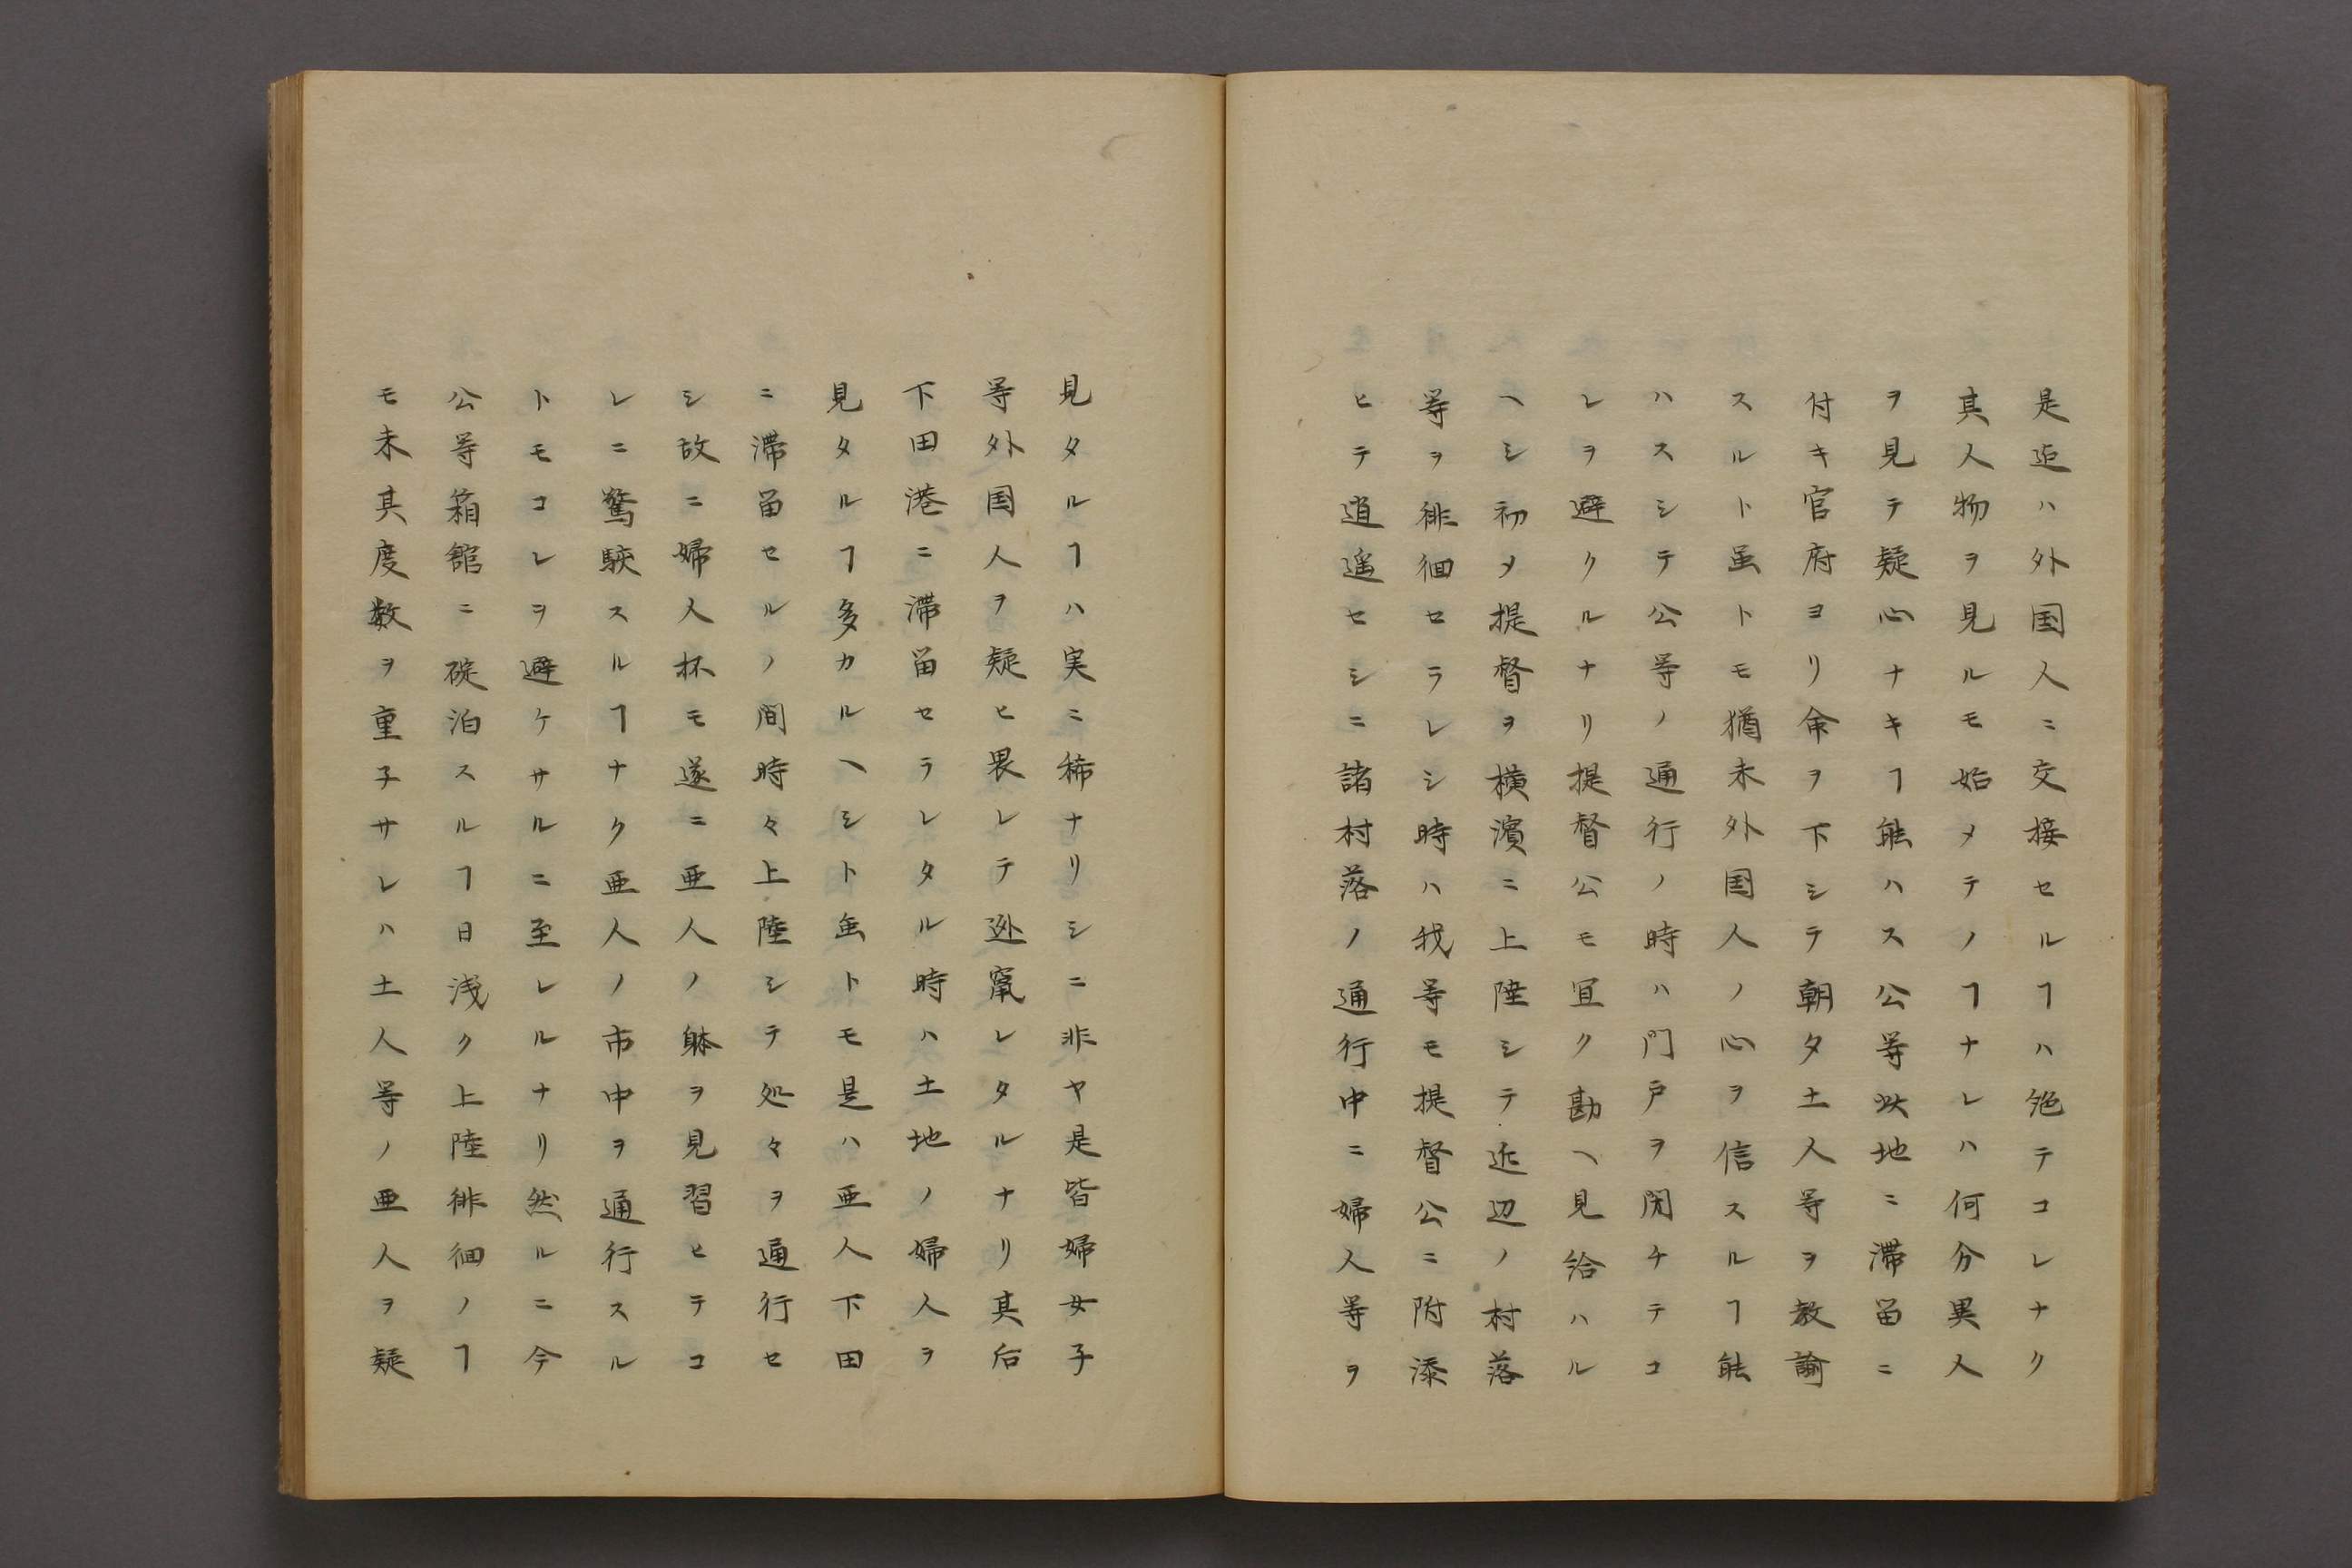 是迠ハ外国人ニ交接セルヿハ絶テコレナク
其人物ヲ見ルモ始メテノヿナレハ何分異人
ヲ見テ疑心ナキヿ能ハス公等此地ニ滞留ニ
付キ官府ヨリ命ヲ下シテ朝夕土人等ヲ教諭
スルト虽トモ猶未外国人ノ心ヲ信スルヿ能
ハスシテ公等ノ通行ノ時ハ門戸ヲ閉チテコ
レヲ避クルナリ提督公モ宜ク勘ヘ見給ハル
ヘシ初メ提督ヲ横濱ニ上陸シテ近辺ノ村落
等ヲ徘徊セラレシ時ハ我等モ提督公ニ附添
ヒテ逍遥セシニ諸村落ノ通行中ニ婦人等ヲ
見タルヿハ実ニ稀ナリシニ非ヤ是皆婦女子
等外国人ヲ疑ヒ畏レテ逊竄レタルナリ其后
下田港ニ滞留セラレタル時ハ土地ノ婦人ヲ
見タルヿ多カルヘシト虽トモ是ハ亜人下田
ニ滞留セルノ間時々上陸シテ処々ヲ通行セ
シ故ニ婦人杯モ遂ニ亜人ノ躰ヲ見習ヒテコ
レニ驚駭スルヿナク亜人ノ市中ヲ通行スル
トモコレヲ避ケサルニ至レルナリ然ルニ今
公等箱舘ニ碇泊スルヿ日浅ク上陸徘徊ノヿ
モ未其度数ヲ重子サレハ土人等ノ亜人ヲ疑